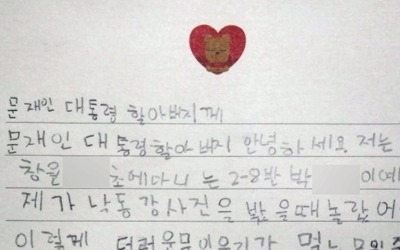 문재인 대통령 할아버지께
문재인 대통령할아버지 안녕하세요 저는
창을 초에다니는 2-8반 박 이예
제가 낙동강사진을 밨을때 놀랐어
이렇게 더러운물이우리가